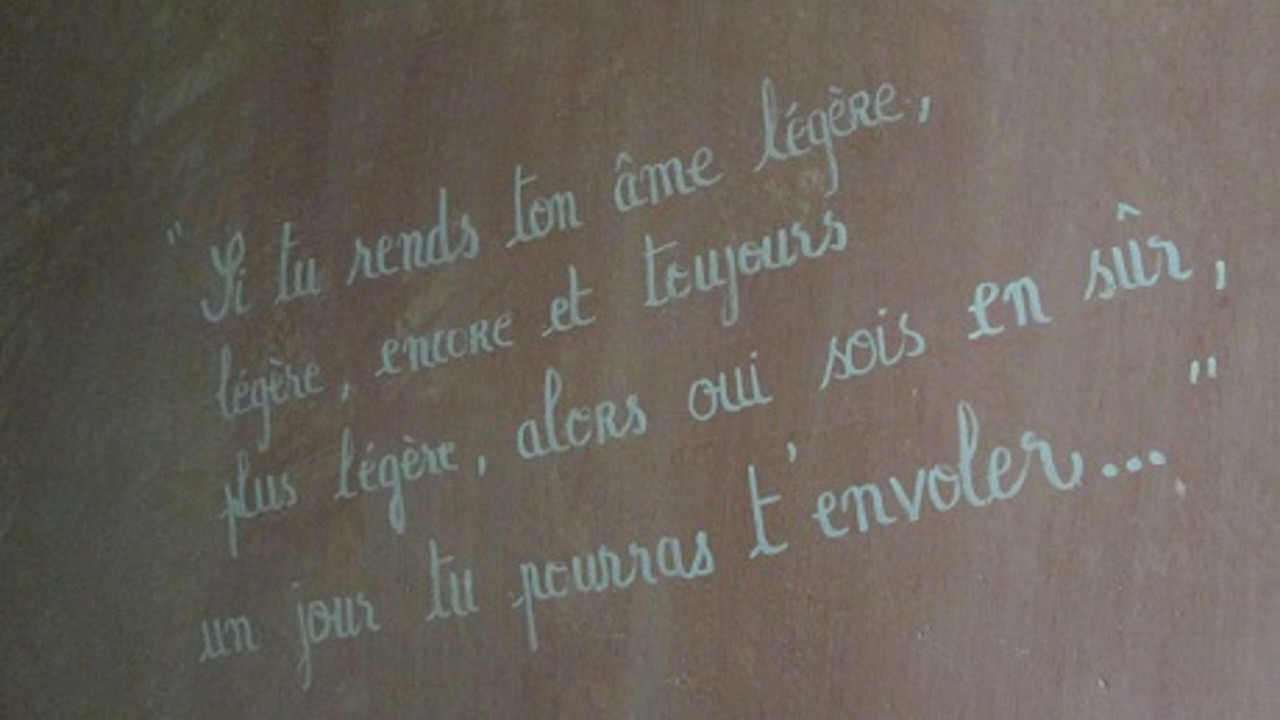 " Si tu rends ton âme légère,
légère, encore et toujours
plus légère, alors oui sois en sûr,
un jour tu pourras t'envoler... "